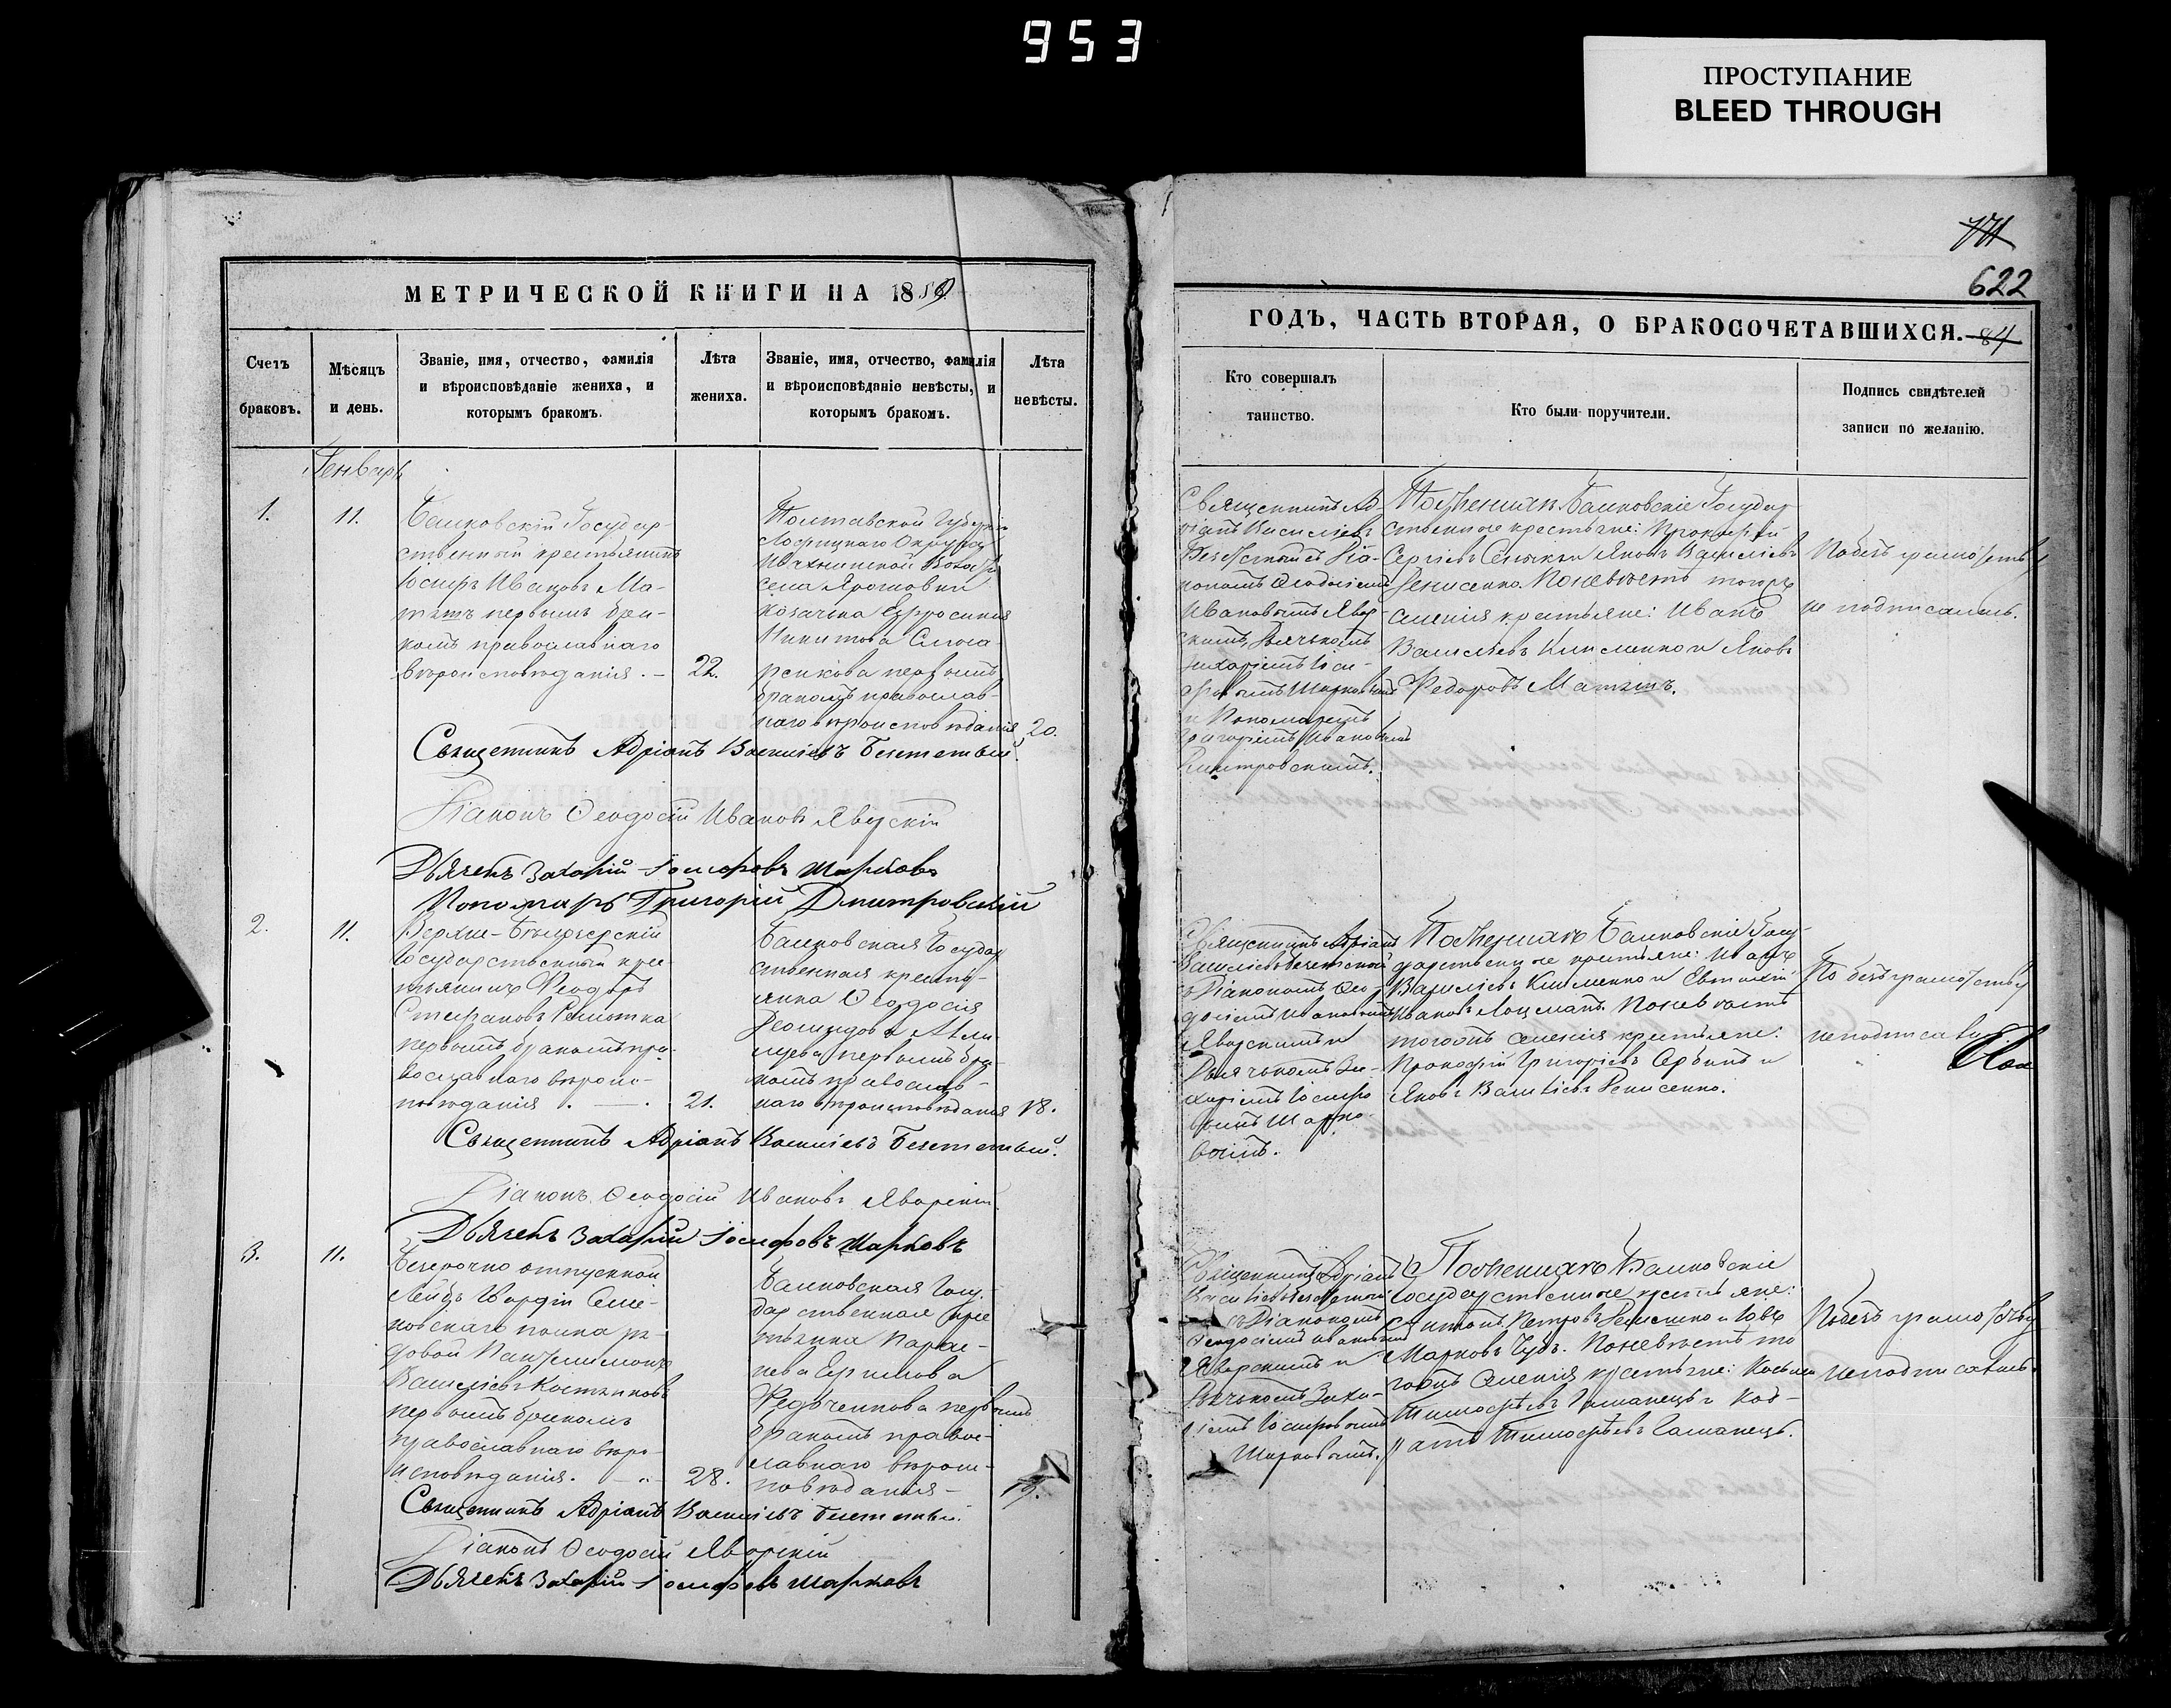 953
ПРОСТУПАНИЕ
BLEED THROUGH
171
622
МЕТРИЧЕСКОЙ КНИГИ НА 1859
ГОДЪ, ЧАСТЬ ВТОРАЯ, О БРАКОСОЧЕТАВШИХСЯ.
84
Счетъ
браковъ.
Мѣсяцъ
и день.
Званіе, имя, отчество, фамилія
и вѣроисповѣданіе жениха, и
которымъ бракомъ.
Лѣта
жениха.
Званіе, имя, отчество, фамилія
и вѣроисповѣданіе невѣсты, и
которымъ бракомъ.
Лѣта
невѣсты.
Кто совершалъ
таинство.
Кто были поручители.
Подпись свидѣтелей
записи по желанію.
Генварь
1.
11.
Банковскій Государ-
ственный крестьянинъ
Іосифъ Ивановъ Ма-
первымъ бра-
комъ православнаго
вѣроисповѣданія. -
22.
Полтавской Губерніи
Лохвицкаго Округа
волости
села Ярошовки
козачка Евфросинія
Никитова
первымъ
бракомъ православ-
наго вѣроисповѣданія
20.
Священникъ Адріанъ
Васильевъ
съ Діа-
кономъ Ѳеодосіемъ
Ивановымъ Явор-
скимъ, Дьячкомъ
Захаріемъ Іоси-
фовымъ Шарковымъ
и Пономаремъ
Григоріемъ Ивановымъ
Дмитровскимъ.
По женихѣ Банковскіе Государ
ственные крестьяне: Прокофій
Сергіевъ и Яковъ Васильевъ
Денисенко. По невѣстѣ тогожъ
селенія крестьяне: Иванъ
Васильевъ Клименко и Яковъ
Федоровъ
По безграмотству
не подписались.
Священникъ Адріанъ Васильевъ
Діаконъ Ѳеодосій Ивановъ Яворскій
Дьячекъ Захарій Іосифовъ Шарковъ
Пономарь Григорій Дмитровскій
2.
11.
Государственный крес-
тьянинъ Ѳеодоръ
Стефановъ
первымъ бракомъ пра-
вославнаго вѣроис-
повѣданія. — .
21.
Банковская Государ
ственная кресть-
янка Ѳеодосія
Леонидова
первымъ бра-
комъ православ-
наго вѣроисповѣданія
18.
Священникъ Адріанъ
Васильевъ
съ Діакономъ Ѳео-
досіемъ Ивановымъ
Яворскимъ и
Дьячкомъ За-
харіемъ Іосифо
вымъ Шарко
вымъ.
По женихѣ Банковскіе Госу-
дарственные крестьяне: Иванъ
Васильевъ Клименко и Евтихій
Ивановъ Лоцманъ. По невѣстѣ
тогожъ селенія крестьяне:
Прокофій Григорьевъ Сербинъ и
Яковъ Васильевъ Денисенко.
По безграмотству
не подписались
Священникъ Адріанъ Васильевъ
Діаконъ Ѳеодосій Ивановъ Яворскій
Дьячекъ Захарій Іосифовъ Шарковъ
3.
11.
Безсрочно отпускной
Лейбъ Гвардіи Семе-
новскаго полка ря-
довой Пантелимонъ
Васильевъ
первымъ бракомъ
православнаго вѣро-
исповѣданія. — " —
28.
Банковская Госу-
дарственная крес
тьянка Парас-
кева Ефимова
Федоченкова первымъ
бракомъ правос-
лавнаго вѣроис-
повѣданія —
19.
Священникъ Адріанъ
Васильевъ
съ Діакономъ
Ѳеодосіемъ Ивановымъ
Яворскимъ и
Дьячкомъ Заха-
ріемъ Іосифовымъ
Шарковымъ.
По женихѣ Банковскіе
Государственные крестьяне:
Антонъ Петровъ Денисенко и Іовъ
Марковъ Чубъ. По невѣстѣ то
гожъ селенія крестьяне: Косьма
Тимофѣевъ Гаманецъ и Код-
ратъ Тимофѣевъ Гаманецъ.
По безграмотству
не подписались.
Священникъ Адріанъ Васильевъ
Діаконъ Ѳеодосій Яворскій
Дьячекъ Захарій Іосифовъ Шарковъ